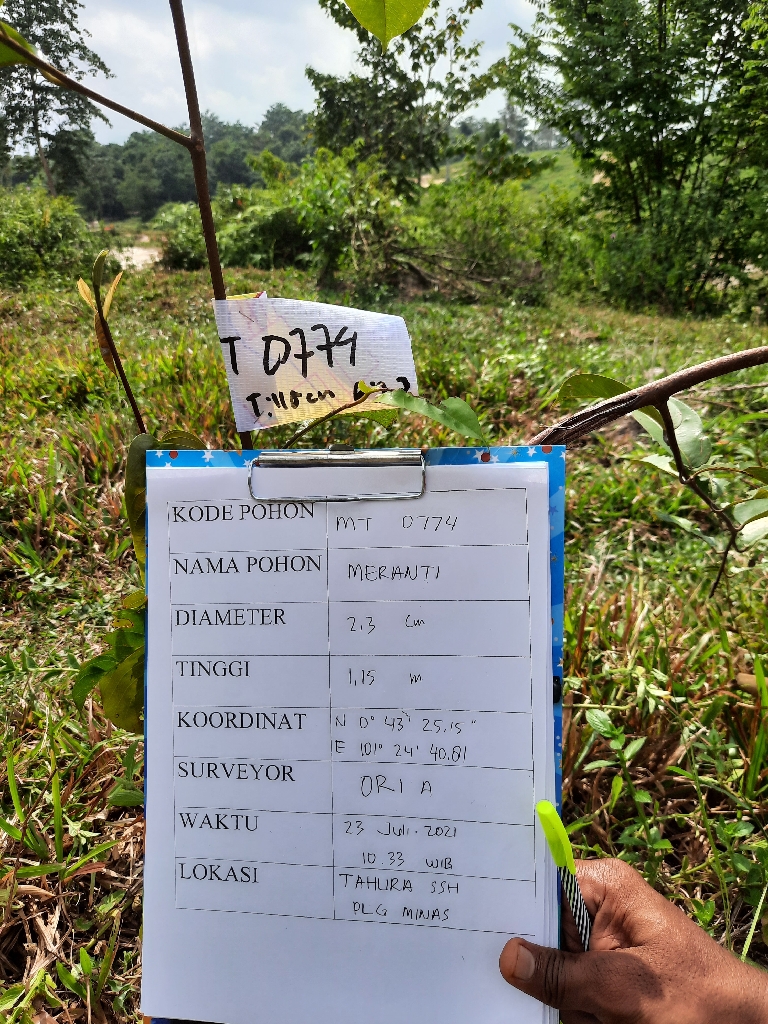 T 0774
T.118cm
KODE POHON MT 0774
NAMA POHON MERANTI
DIAMETER 2,3 cm
TINGGI 1,15 m
KOORDINAT N 0° 43' 25,15 "
E 101° 24' 40.81
SURVEYOR ORI A
WAKTU 23 Juli. 2021
10.33 WIB
LOKASI TAHURA SSH
PLG MINAS